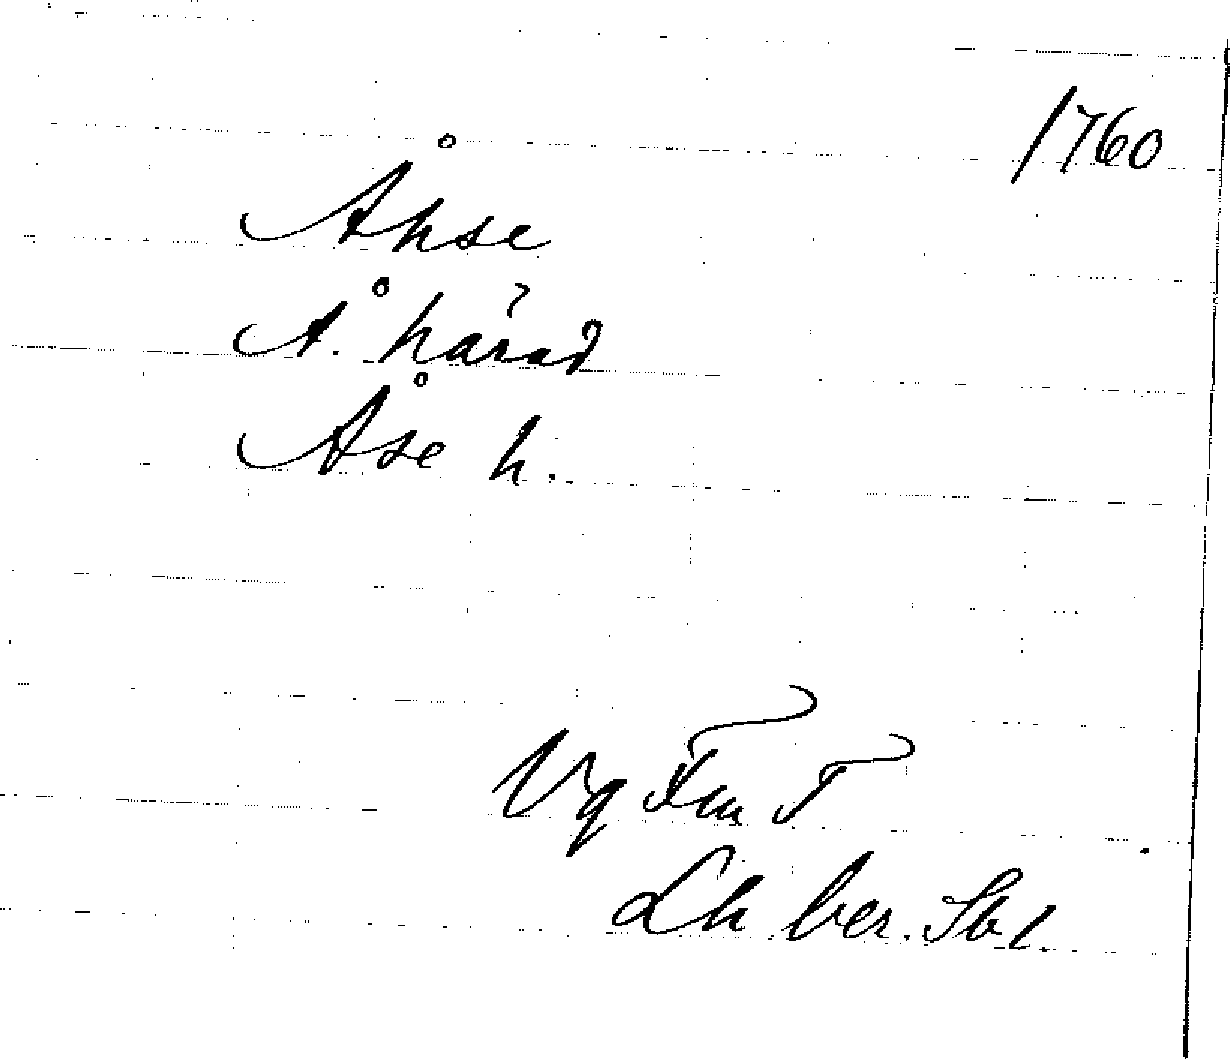 1760
Åhse
Å. härad
Åse h.
Vg Fm T
Lh ber. Sbl.